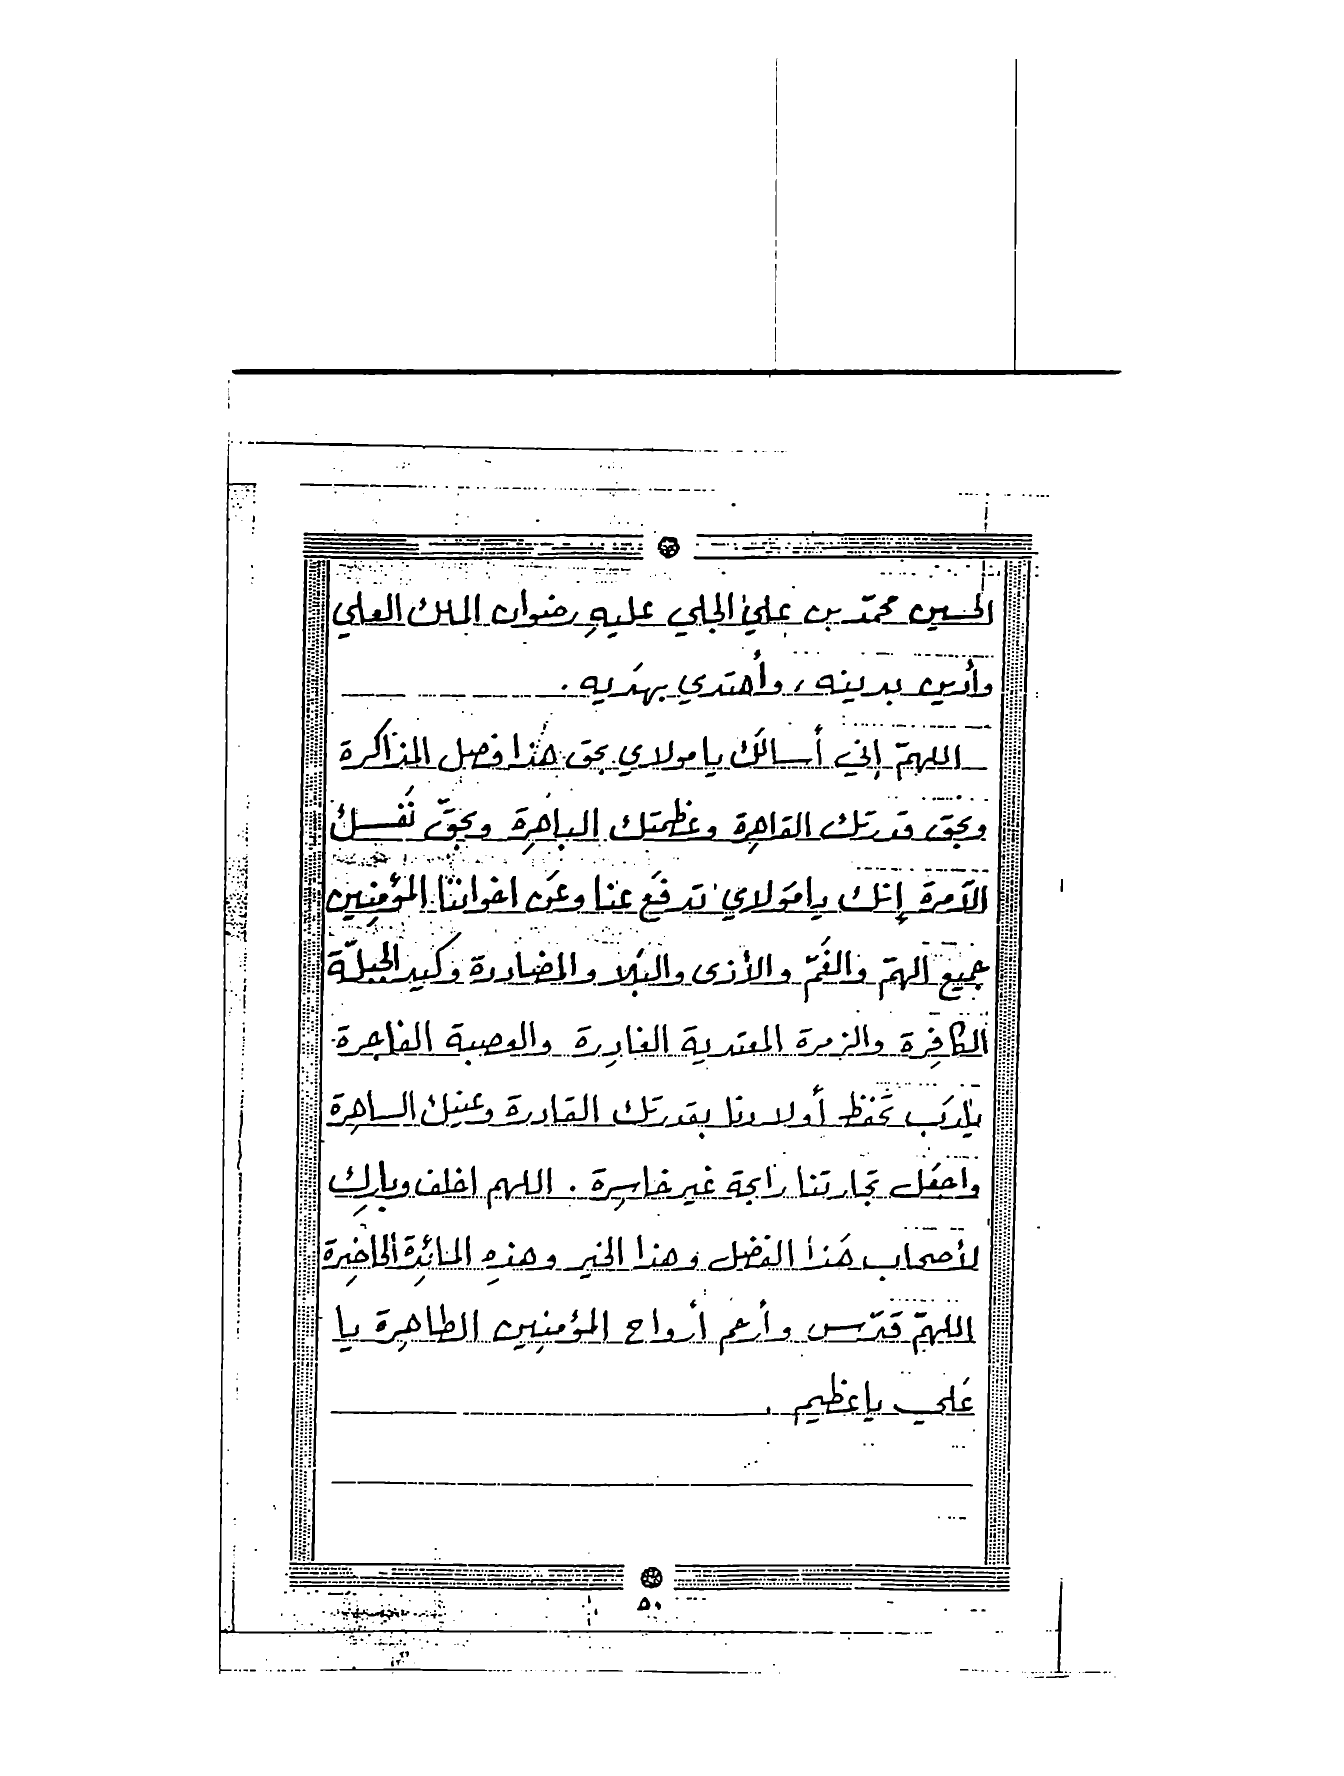 الحسين محمّد بن علي الجلي عليهِ رضوان الملك العلي
وأدين بدينه ، وأهتدي بهَديه .
اللهمّ إني أسالَك يا مولاي بحق هَذا فصل المذاكرة
وبحق قدرتك القاهِرة وعَظمتِك الباهِرة وبحقّ نَفسك
الآمرة إنك يا مَولاي تدفَع عنا وعَن اخواننا المؤمِنين
جميع الهمّ والغَمّ والأذى والبَلا والمضاددة وكيد الجبلّة
الكافِرة والزمرة المعتدية الغادِرة والعصبة الفاجرة
يا رَب تحفظ أولادنا بقدرتك القادرة وعينك الساهِرة
واجعَل تجارتنا رابحة غير خاسِرة . اللهم اخلف وبارِك
لأصحاب هَذا الفضل وهذا الخير وهذهِ المائِدة الحاضِرة
اللهمّ قَدّس وأرحم أرواح المؤمنِين الطاهِرة يا
عَلي يا عظيم .
٥٠